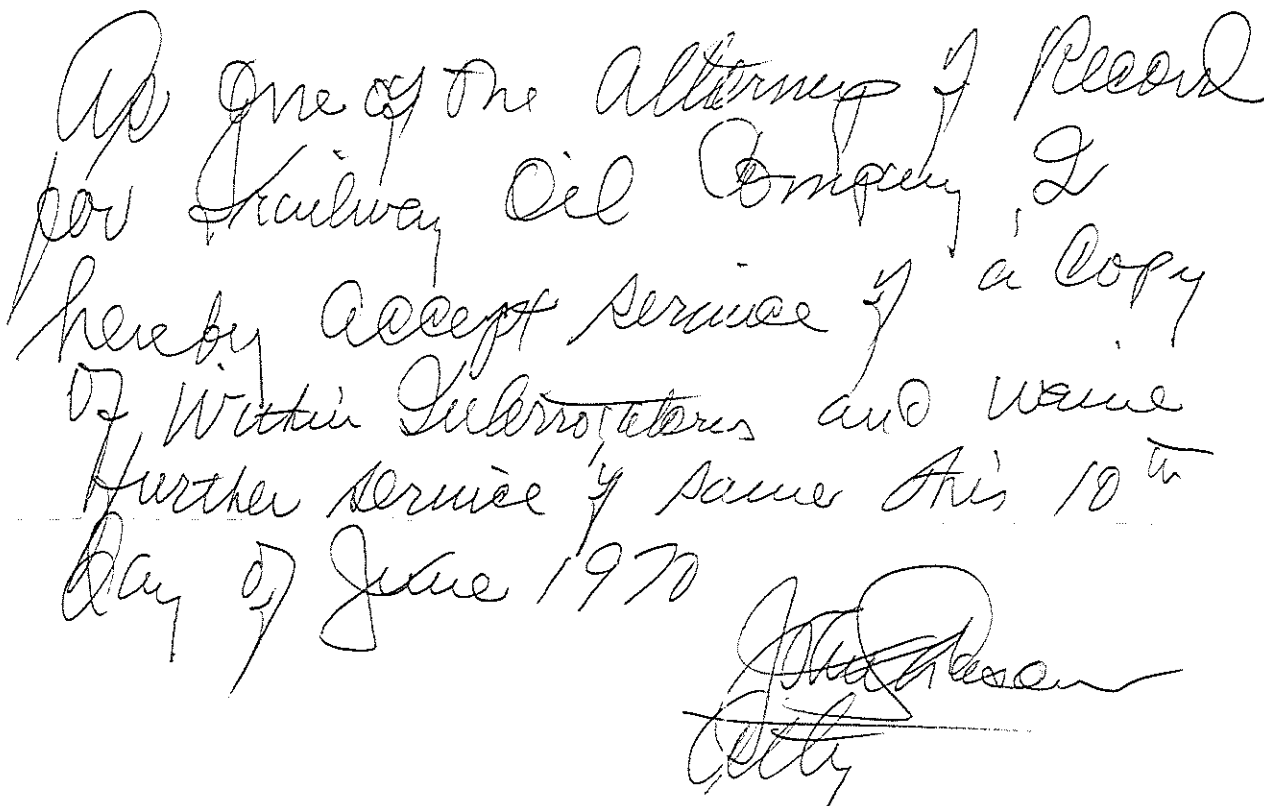 As One of the Attorneys of Record
for Trailway Oil Company, I
hereby accept service of a Copy
of Within Interrogatories and waive
Further service of same this 10th
Day of June 1970
John Chason
Atty